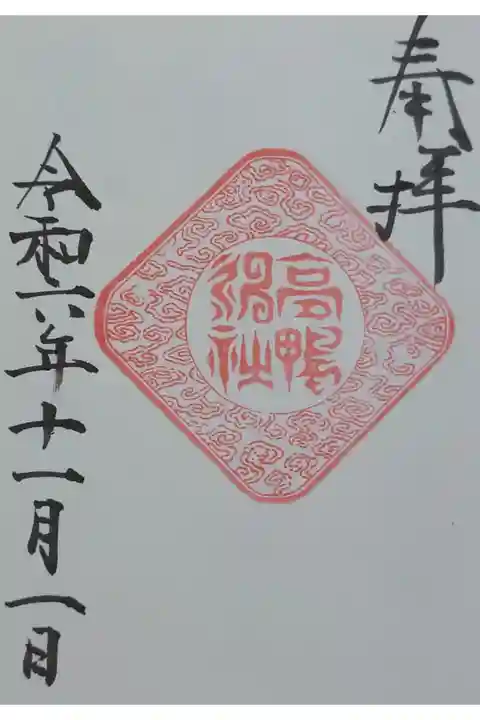 奉拝
高鴨
神社
令和六年十一月一日